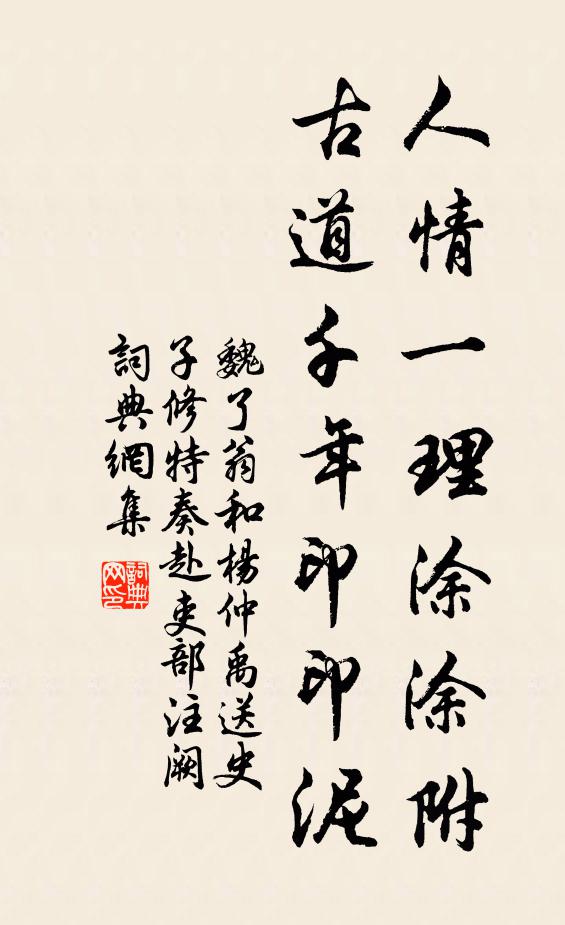 人情一理涂涂附
古道千年印印泥
魏了翁和楊仲禹送史
子修特奏赴吏部注阙
詞典網集
詞典
网印